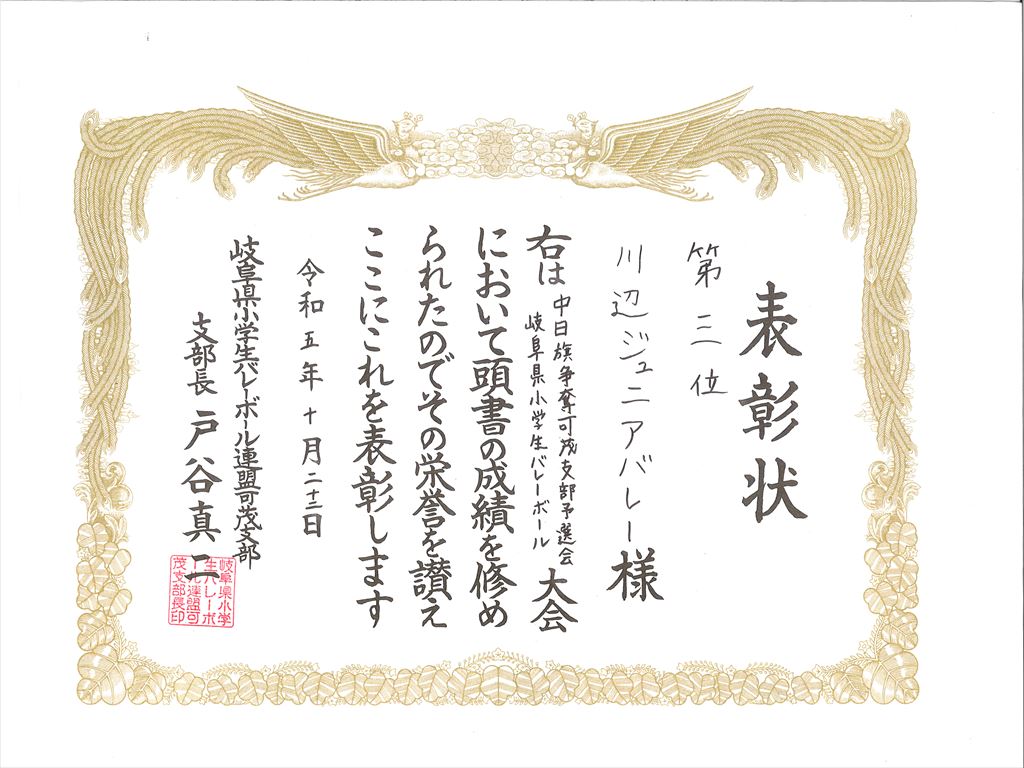 表彰状
第三位
川辺ジュニアバレー様
右は中日旗争奪可茂支部予選会
岐阜県小学生バレーボール大会
において頭書の成績を修め
られたのでその栄誉を讃え
ここにこれを表彰します
令和五年十月二十二日
岐阜県小学生バレーボール連盟可茂支部
支部長 戸谷真二
岐阜県小学
生バレーボ
ール連盟可
茂支部長印